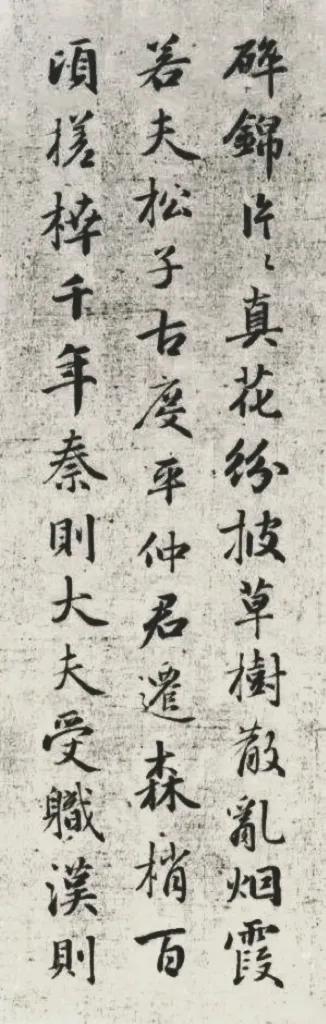 碎錦片〻真花紛披草樹散亂烟霞
若夫松子古度平仲君遷森梢百
頃槎枿千年秦則大夫受職漢則